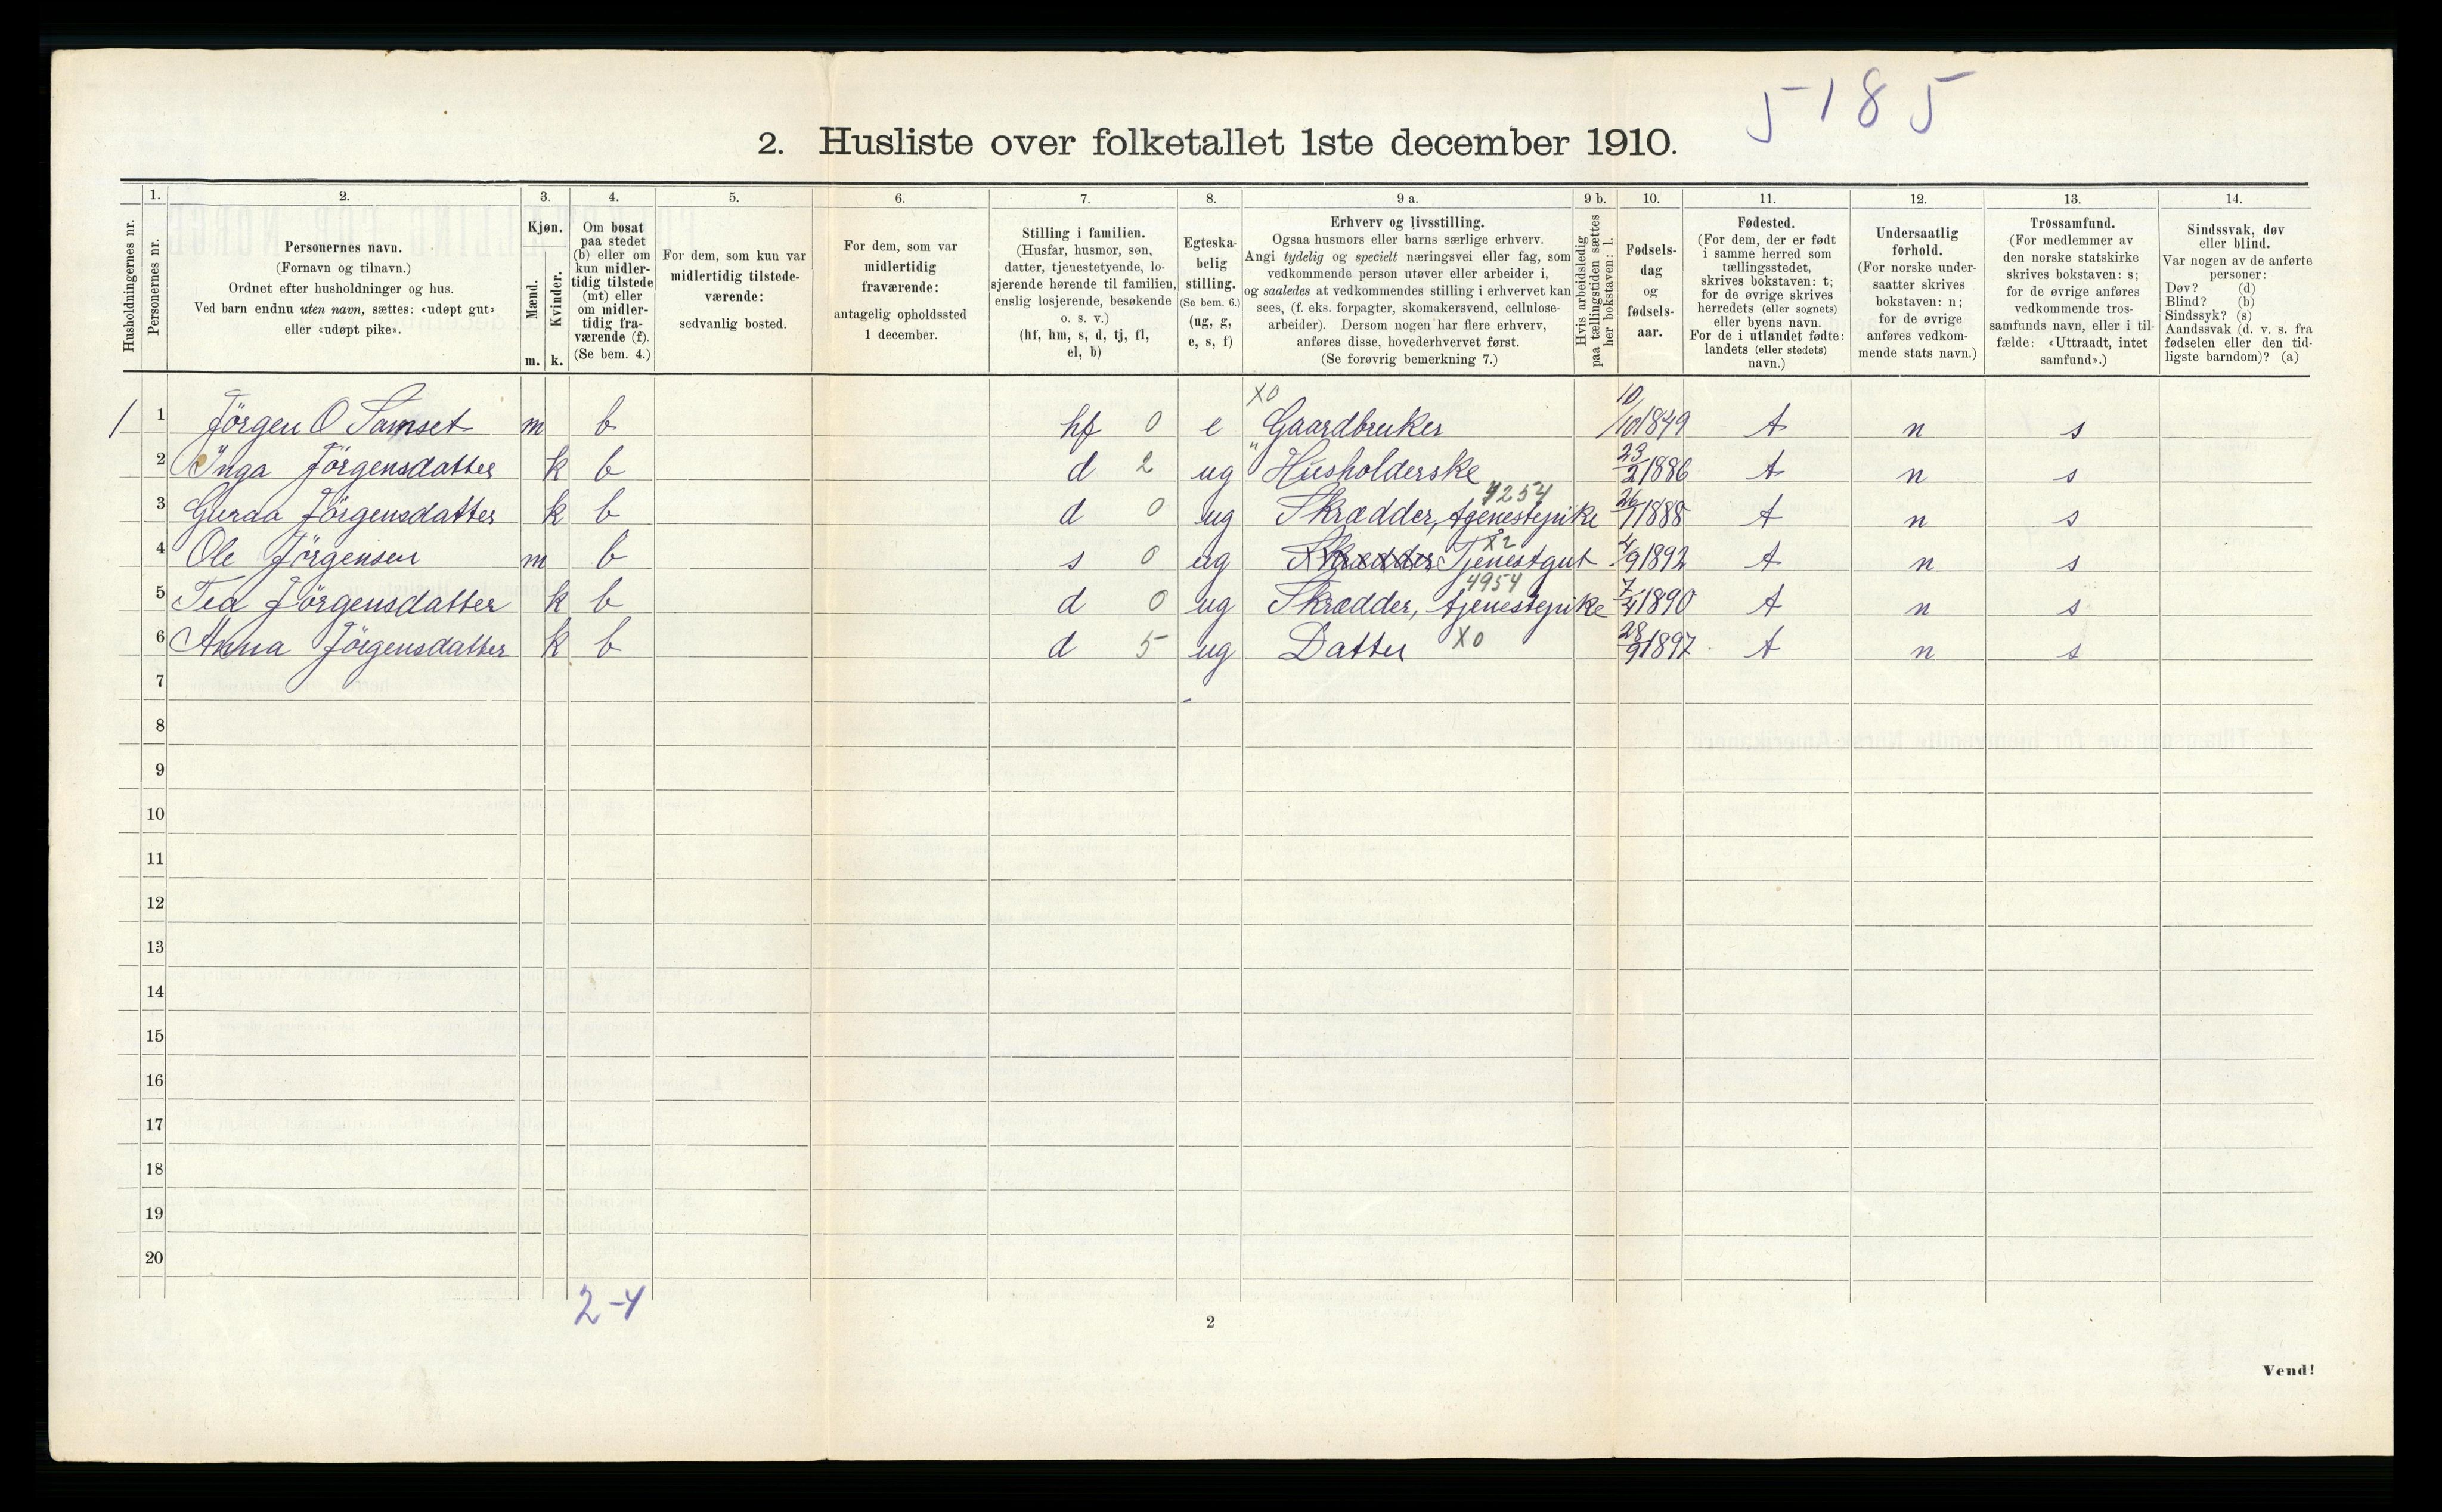 5185
2. Husliste over folketallet 1ste december 1910.
Husholdningernes nr.
1. Personernes nr.
2. Personernes navn.
(Fornavn og tilnavn.)
Ordnet efter husholdninger og hus.
Ved barn endnu uten navn, sættes: «udøpt gut»
eller «udøpt pike».
3. Kjøn.
Mænd. Kvinder.
m. k.
4. Om bosat
paa stedet
(b) eller om
kun midler-
tidig tilstede
(mt) eller
om midler-
tidig fra-
værende (f).
(Se bem. 4.)
5. For dem, som kun var
midlertidig tilstede-
værende:
sedvanlig bosted.
6. For dem, som var
midlertidig
fraværende:
antagelig opholdssted
1 december.
7. Stilling i familien.
(Husfar, husmor, søn,
datter, tjenestetyende, lo-
sjerende hørende til familien,
enslig losjerende, besøkende
o. s. v.)
(hf, hm, s, d, tj, fl,
el, b)
8. Egteska-
belig
stilling.
(Se bem. 6.)
(ug, g,
e, s, f)
9 a. Erhverv og livsstilling.
Ogsaa husmors eller barns særlige erhverv.
Angi tydelig og specielt næringsvei eller fag, som
vedkommende person utøver eller arbeider i,
og saaledes at vedkommendes stilling i erhvervet kan
sees, (f. eks. forpagter, skomakersvend, cellulose-
arbeider). Dersom nogen har flere erhverv,
anføres disse, hovederhvervet først.
(Se forøvrig bemerkning 7.)
9 b. Hvis arbeidsledig
paa tællingstiden sættes
her bokstaven: l.
10. Fødsels-
dag
og
fødsels-
aar.
11. Fødested.
(For dem, der er født
i samme herred som
tællingsstedet,
skrives bokstaven: t;
for de øvrige skrives
herredets (eller sognets)
eller byens navn.
For de i utlandet fødte:
landets (eller stedets)
navn.)
12. Undersaatlig
forhold.
(For norske under-
saatter skrives
bokstaven: n;
for de øvrige
anføres vedkom-
mende stats navn.)
13. Trossamfund.
(For medlemmer av
den norske statskirke
skrives bokstaven: s;
for de øvrige anføres
vedkommende tros-
samfunds navn, eller i til-
fælde: «Uttraadt, intet
samfund».)
14. Sindssvak, døv
eller blind.
Var nogen av de anførte
personer:
Døv? (d)
Blind? (b)
Sindssyk? (s)
Aandssvak (d. v. s. fra
fødselen eller den tid-
ligste barndom)? (a)
X0
1 1 Jörgen O Samset m b hf 0 e Gaardbruker 10/10 1849 t n s
2 Inga Jörgensdatter k b d 2 ug " Husholderske 23/2 1886 t n s
3 Guraa Jörgensdatter k b d 0 ug Skrædder, tjenestepike 4254 26/1 1888 t n s
4 Ole Jörgensen m b s 0 ug Skrædder Tjenestgut X2 4/9 1892 t n s
5 Tea Jörgensdatter k b d 0 ug Skrædder, tjenestepike 4954 7/4 1890 t n s
6 Anna Jörgensdatter k b d 5 ug Datter X0 28/9 1897 t n s
7
8
9
10
11
12
13
14
15
16
17
18
19
20
2-4
2
Vend!